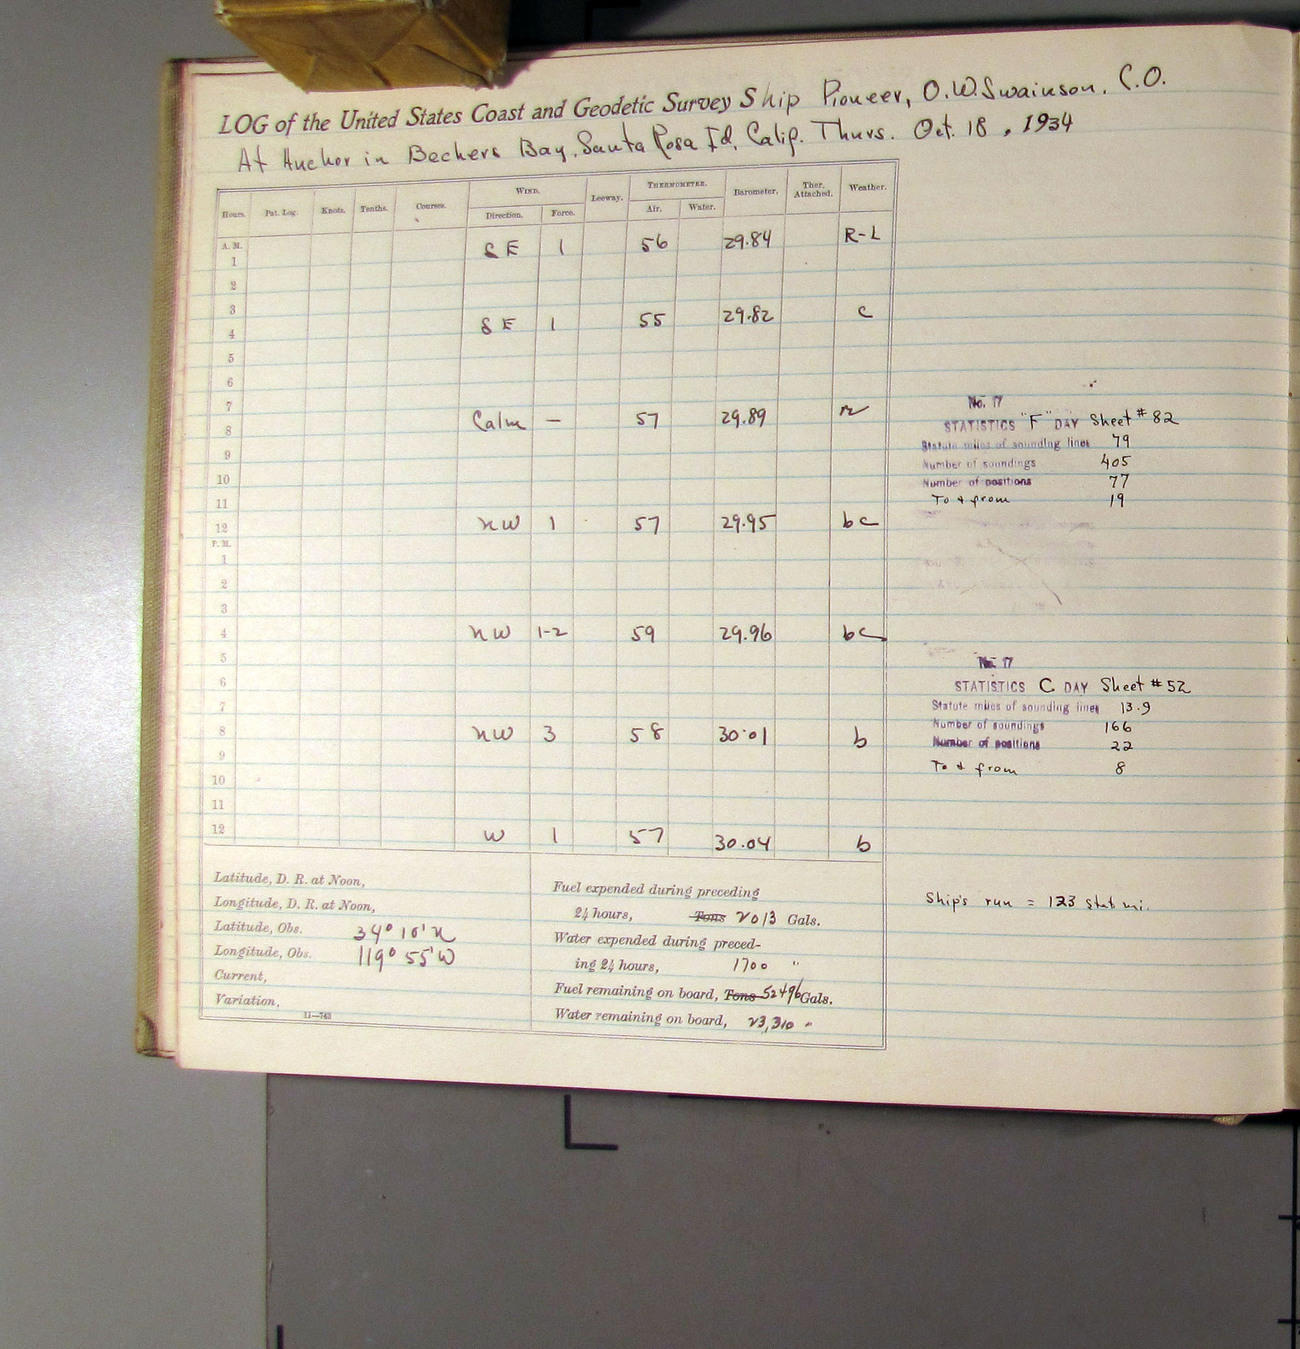 LOG of the United States Coast and Geodetic Survey Ship Pioneer, O.W. Swainson, C.O.
At Anchor in Bechers Bay, Santa Rosa Id, Calif. Thurs. Oct. 18, 1934
Hours. Pat. Log. Knots. Tenths. Courses. WIND. Direction. Force. Leeway. THERMOMETER. Air. Water. Barometer. Ther. Attached. Weather.
A. M.
1 SE 1 56 29.84 R-L
2
3
4 SE 1 55 29.82 c
5
6
7
8 Calm — 57 29.89
9
10
11
12 NW 1 57 29.95 bc
P. M.
1
2
3
4 NW 1-2 59 29.96 bc
5
6
7
8 NW 3 58 30.01 b
9
10
11
12 W 1 57 30.04 b
No. 17
STATISTICS "F" DAY Sheet #82
Statute miles of sounding lines 79
Number of soundings 405
Number of positions 77
To & from 19
No. 17
STATISTICS C DAY Sheet #52
Statute miles of sounding lines 13.9
Number of soundings 166
Number of positions 22
To & from 8
Ship's run = 123 stat mi.
Latitude, D. R. at Noon,
Longitude, D. R. at Noon,
Latitude, Obs. 34° 10' N
Longitude, Obs. 119° 55' W
Current,
Variation,
11—743
Fuel expended during preceding
24 hours, Tons 2013 Gals.
Water expended during preced-
ing 24 hours, 1700 "
Fuel remaining on board, Tons 52496 Gals.
Water remaining on board, 23,310 "